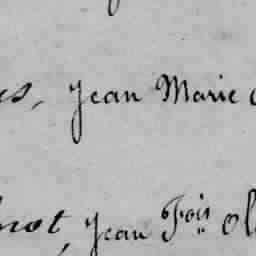 es, Jean Marie
not, Jean Fois Ol